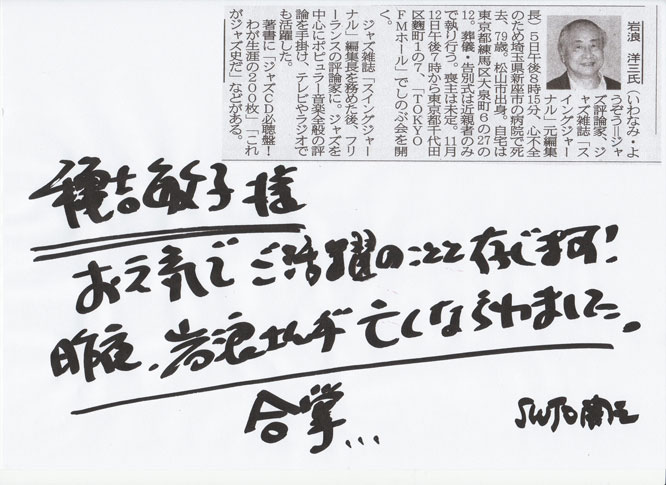 岩浪 洋三氏(いわなみ・よ
うぞう=ジャ
ズ評論家、ジ
ャズ雑誌「ス
イングジャー
ナル」元編集
長)5日午後8時15分、心不全
のため埼玉県新座市の病院で死
去、79歳。松山市出身。自宅は
東京都練馬区大泉町6の27の
12。葬儀・告別式は近親者のみ
で執り行う。喪主は未定。11月
12日午後7時から東京都千代田
区麹町1の7、「TOKYO
FMホール」でしのぶ会を開
く。
ジャズ雑誌「スイングジャー
ナル」編集長を務めた後、フリ
ーランスの評論家に。ジャズを
中心にポピュラー音楽全般の評
論を手掛け、テレビやラジオで
も活躍した。
著書に「ジャズCD必聴盤!
わが生涯の200枚」「これ
がジャズ史だ」などがある。
穐吉敏子様
お元気でご活躍のことと存じます!
昨夜、岩浪さんが亡くなられました。
合掌...
SUTO